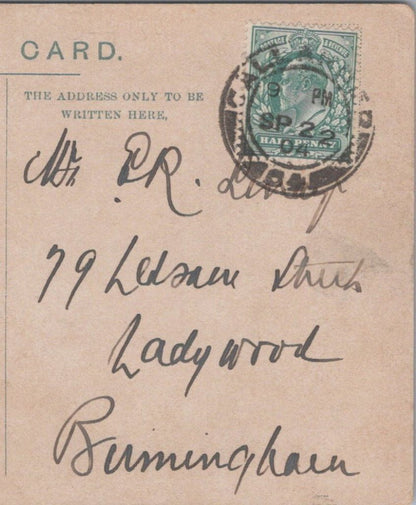 CARD.
THE ADDRESS ONLY TO BE
WRITTEN HERE,
POSTAGE & REVENUE
HALFPENNY
9 PM
SP 22
04
Mr. E.R.
79 Ledsam Street
Ladywood
Birmingham